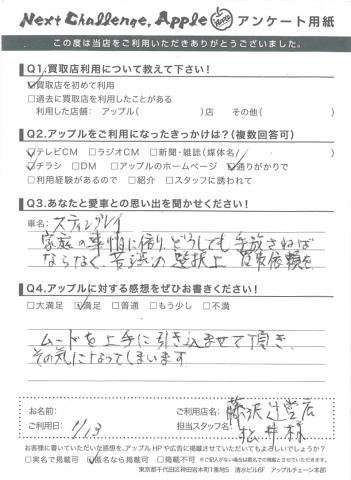 Next Challenge. Apple アンケート用紙
この度は当店をご利用いただきありがとうございました。
Q1.買取店利用について教えて下さい!
☑買取店を初めて利用
□過去に買取店を利用したことがある
利用した店舗: アップル( )店 その他( )
Q2.アップルをご利用になったきっかけは?(複数回答可)
☑テレビCM □ラジオCM □新聞・雑誌(媒体名 )
☑チラシ □DM □アップルのホームページ ☑通りがかりで
□利用経験があるので □紹介 □スタッフに誘われて
Q3.あなたと愛車との思い出を聞かせください!
車名: スティングレイ
家族の事情に依り、どうしても手放さねば
ならなく、苦渋の選択上 買取依頼を
Q4.アップルに対する感想をぜひお書きください!
□大満足 ☑満足 □普通 □もう少し □不満
ムードを上手に引き込ませて頂き
その気になってしまいます
お名前: ご利用店名: 藤沢辻堂店
ご利用日: 1/13 担当スタッフ名: 松井様
お客様に書いていただいた感想を、アップルHPや広告に掲載させていただいてもよろしいでしょうか?
□実名で掲載可 ☑匿名なら掲載可 □掲載不可 ※ご記入がない場合は匿名での掲載とさせていただきます。
東京都千代田区神田岩本町1番地5 清水ビル6F アップルチェーン本部